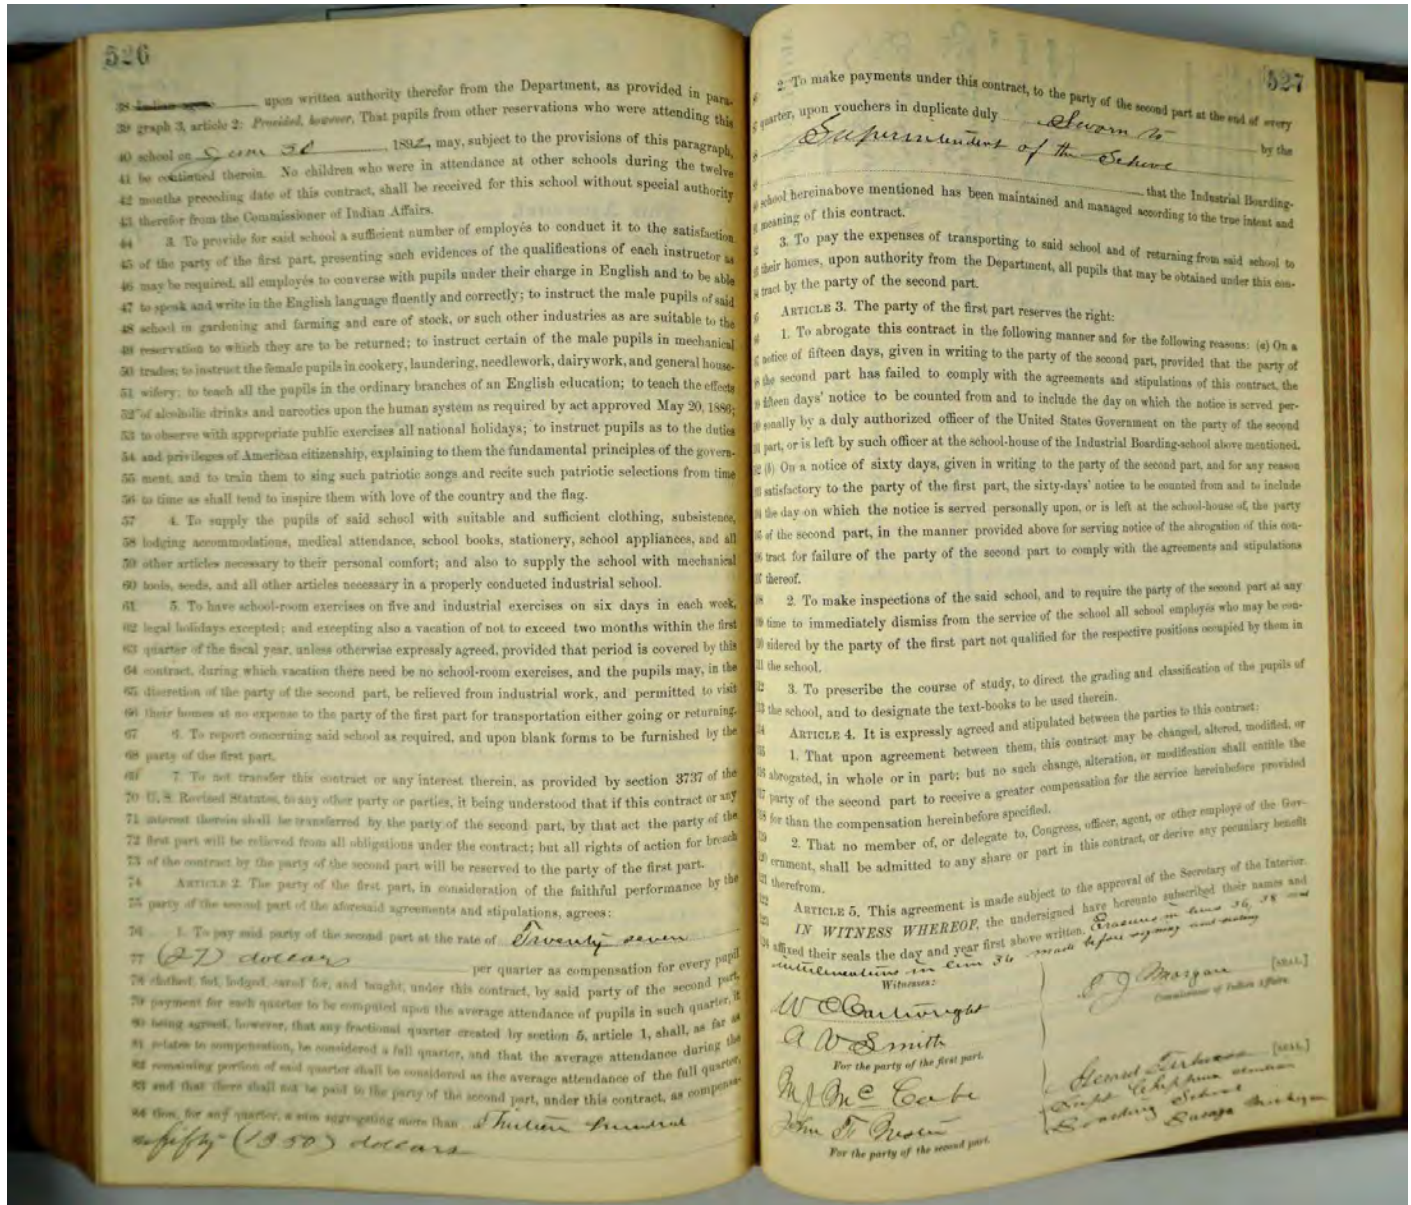 526
38 Indian agent upon written authority therefor from the Department, as provided in para-
39 graph 3, article 2: Provided, however, That pupils from other reservations who were attending this
40 school on June 30, 1892, may, subject to the provisions of this paragraph,
41 be continued therein. No children who were in attendance at other schools during the twelve
42 months preceding date of this contract, shall be received for this school without special authority
43 therefor from the Commissioner of Indian Affairs.
44 3. To provide for said school a sufficient number of employés to conduct it to the satisfaction
45 of the party of the first part, presenting such evidences of the qualifications of each instructor as
46 may be required, all employés to converse with pupils under their charge in English and to be able
47 to speak and write in the English language fluently and correctly; to instruct the male pupils of said
48 school in gardening and farming and care of stock, or such other industries as are suitable to the
49 reservation to which they are to be returned; to instruct certain of the male pupils in mechanical
50 trades; to instruct the female pupils in cookery, laundering, needlework, dairywork, and general house-
51 wifery; to teach all the pupils in the ordinary branches of an English education; to teach the effects
52 of alcoholic drinks and narcotics upon the human system as required by act approved May 20, 1886;
53 to observe with appropriate public exercises all national holidays; to instruct pupils as to the duties
54 and privileges of American citizenship, explaining to them the fundamental principles of the govern-
55 ment, and to train them to sing such patriotic songs and recite such patriotic selections from time
56 to time as shall tend to inspire them with love of the country and the flag.
57 4. To supply the pupils of said school with suitable and sufficient clothing, subsistence,
58 lodging accommodations, medical attendance, school books, stationery, school appliances, and all
59 other articles necessary to their personal comfort; and also to supply the school with mechanical
60 tools, seeds, and all other articles necessary in a properly conducted industrial school.
61 5. To have school-room exercises on five and industrial exercises on six days in each week,
62 legal holidays excepted; and excepting also a vacation of not to exceed two months within the first
63 quarter of the fiscal year, unless otherwise expressly agreed, provided that period is covered by this
64 contract, during which vacation there need be no school-room exercises, and the pupils may, in the
65 discretion of the party of the second part, be relieved from industrial work, and permitted to visit
66 their homes at no expense to the party of the first part for transportation either going or returning.
67 6. To report concerning said school as required, and upon blank forms to be furnished by the
68 party of the first part.
69 7. To not transfer this contract or any interest therein, as provided by section 3737 of the
70 U. S. Revised Statutes, to any other party or parties, it being understood that if this contract or any
71 interest therein shall be transferred by the party of the second part, by that act the party of the
72 first part will be relieved from all obligations under the contract; but all rights of action for breach
73 of the contract by the party of the second part will be reserved to the party of the first part.
74 ARTICLE 2. The party of the first part, in consideration of the faithful performance by the
75 party of the second part of the aforesaid agreements and stipulations, agrees:
76 1. To pay said party of the second part at the rate of Twenty seven
77 (27) dollars per quarter as compensation for every pupil
78 clothed, fed, lodged, cared for, and taught, under this contract, by said party of the second part,
79 payment for each quarter to be computed upon the average attendance of pupils in such quarter, it
80 being agreed, however, that any fractional quarter created by section 5, article 1, shall, as far as
81 relates to compensation, be considered a full quarter, and that the average attendance during the
82 remaining portion of said quarter shall be considered as the average attendance of the full quarter,
83 and that there shall not be paid to the party of the second part, under this contract, as compensa-
84 tion, for any quarter, a sum aggregating more than Thirteen hundred
fifty (1350) dollars
527
2. To make payments under this contract, to the party of the second part at the end of every
quarter, upon vouchers in duplicate duly Sworn to by the
Superintendent of the School
that the Industrial Boarding-
school hereinabove mentioned has been maintained and managed according to the true intent and
meaning of this contract.
3. To pay the expenses of transporting to said school and of returning from said school to
their homes, upon authority from the Department, all pupils that may be obtained under this con-
tract by the party of the second part.
ARTICLE 3. The party of the first part reserves the right:
1. To abrogate this contract in the following manner and for the following reasons: (a) On a
notice of fifteen days, given in writing to the party of the second part, provided that the party of
the second part has failed to comply with the agreements and stipulations of this contract, the
fifteen days' notice to be counted from and to include the day on which the notice is served per-
sonally by a duly authorized officer of the United States Government on the party of the second
part, or is left by such officer at the school-house of the Industrial Boarding-school above mentioned.
(b) On a notice of sixty days, given in writing to the party of the second part, and for any reason
satisfactory to the party of the first part, the sixty-days' notice to be counted from and to include
the day on which the notice is served personally upon, or is left at the school-house of, the party
of the second part, in the manner provided above for serving notice of the abrogation of this con-
tract for failure of the party of the second part to comply with the agreements and stipulations
thereof.
2. To make inspections of the said school, and to require the party of the second part at any
time to immediately dismiss from the service of the school all school employés who may be con-
sidered by the party of the first part not qualified for the respective positions occupied by them in
the school.
3. To prescribe the course of study, to direct the grading and classification of the pupils of
the school, and to designate the text-books to be used therein.
ARTICLE 4. It is expressly agreed and stipulated between the parties to this contract:
1. That upon agreement between them, this contract may be changed, altered, modified, or
abrogated, in whole or in part; but no such change, alteration, or modification shall entitle the
party of the second part to receive a greater compensation for the service hereinbefore provided
for than the compensation hereinbefore specified.
2. That no member of, or delegate to, Congress, officer, agent, or other employé of the Gov-
ernment, shall be admitted to any share or part in this contract, or derive any pecuniary benefit
therefrom.
ARTICLE 5. This agreement is made subject to the approval of the Secretary of the Interior.
IN WITNESS WHEREOF, the undersigned have hereunto subscribed their names and
affixed their seals the day and year first above written. Erasures in lines 36, 38 and
interlineations in line 36 made before signing
Witnesses:
W C Cartwright
A W Smith
For the party of the first part.
T J Morgan [SEAL.]
Commissioner of Indian Affairs.
M J McCabe
John F
For the party of the second part.
[SEAL.]
Supt Chippewa Indian
Boarding School
Baraga Michigan